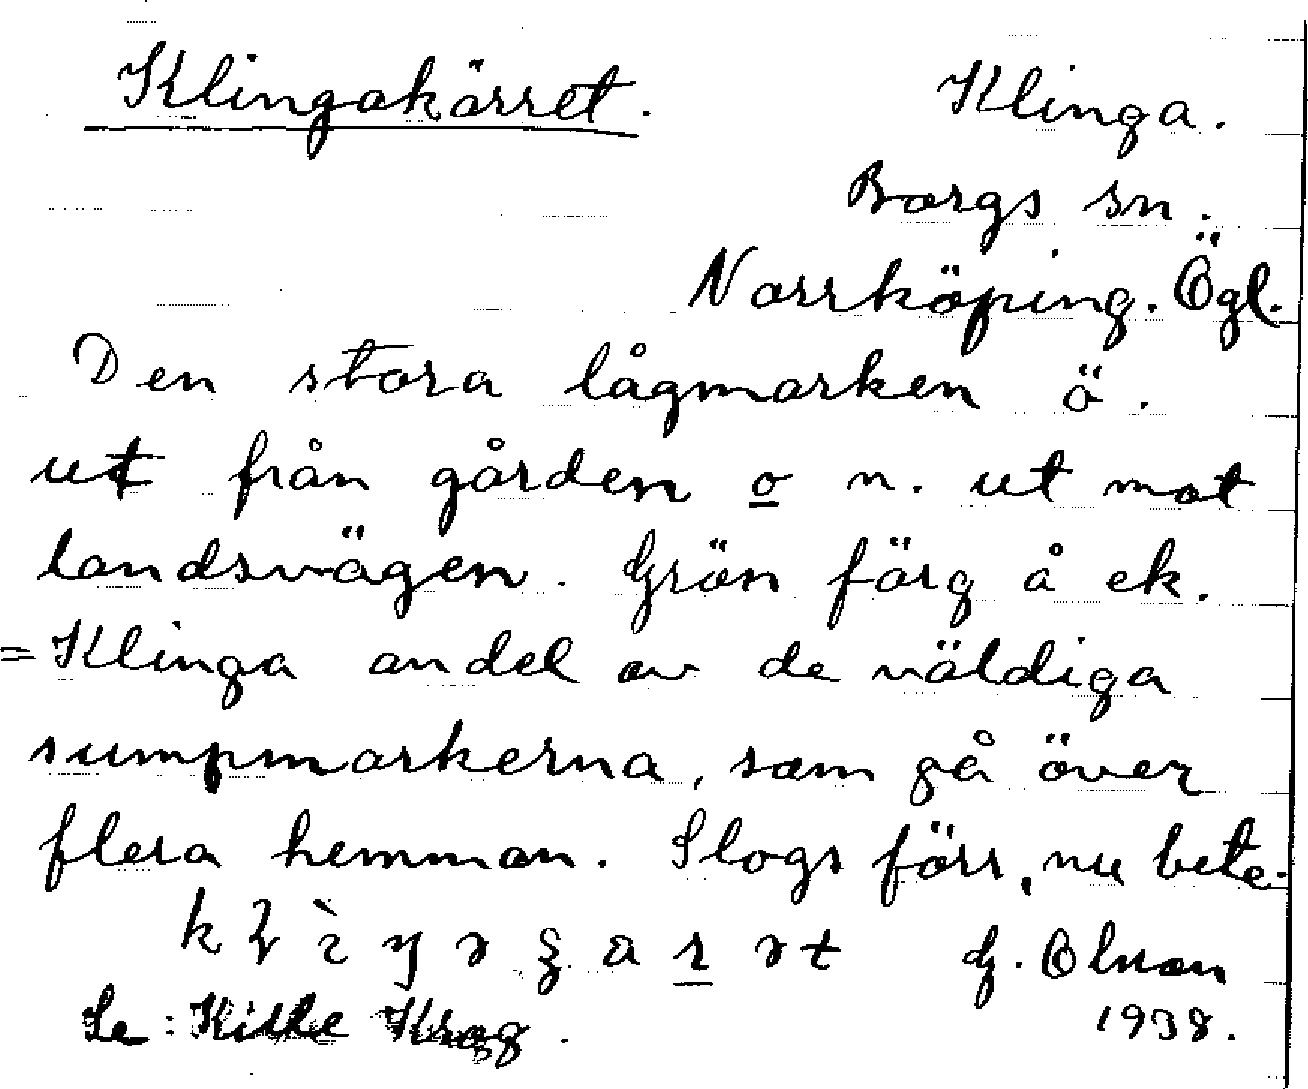 Klingakärret. Klinga.
Borgs sn.
Norrköping. Ögl.
Den stora lågmarken ö.
ut från gården o n. ut mot
landsvägen. Grön färg å ek.
= Klinga andel av de väldiga
sumpmarkerna, som gå över
flera hemman. Slogs förr, nu bete.
G. Olson
Se: Kille Krog.
1938.